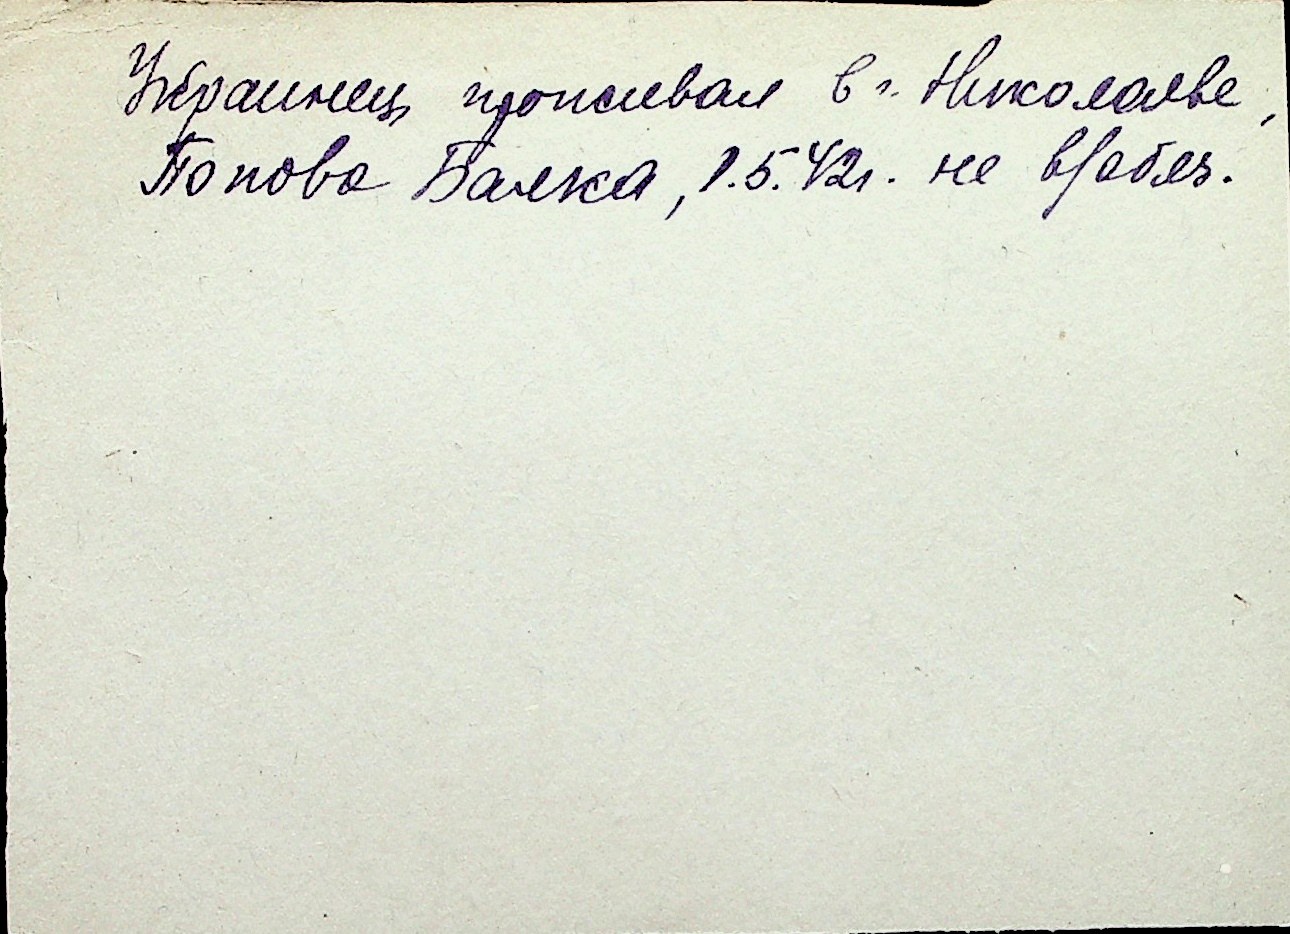 Украинец проживал в г. Николаеве,
Попова Балка, 1.5.42г. не